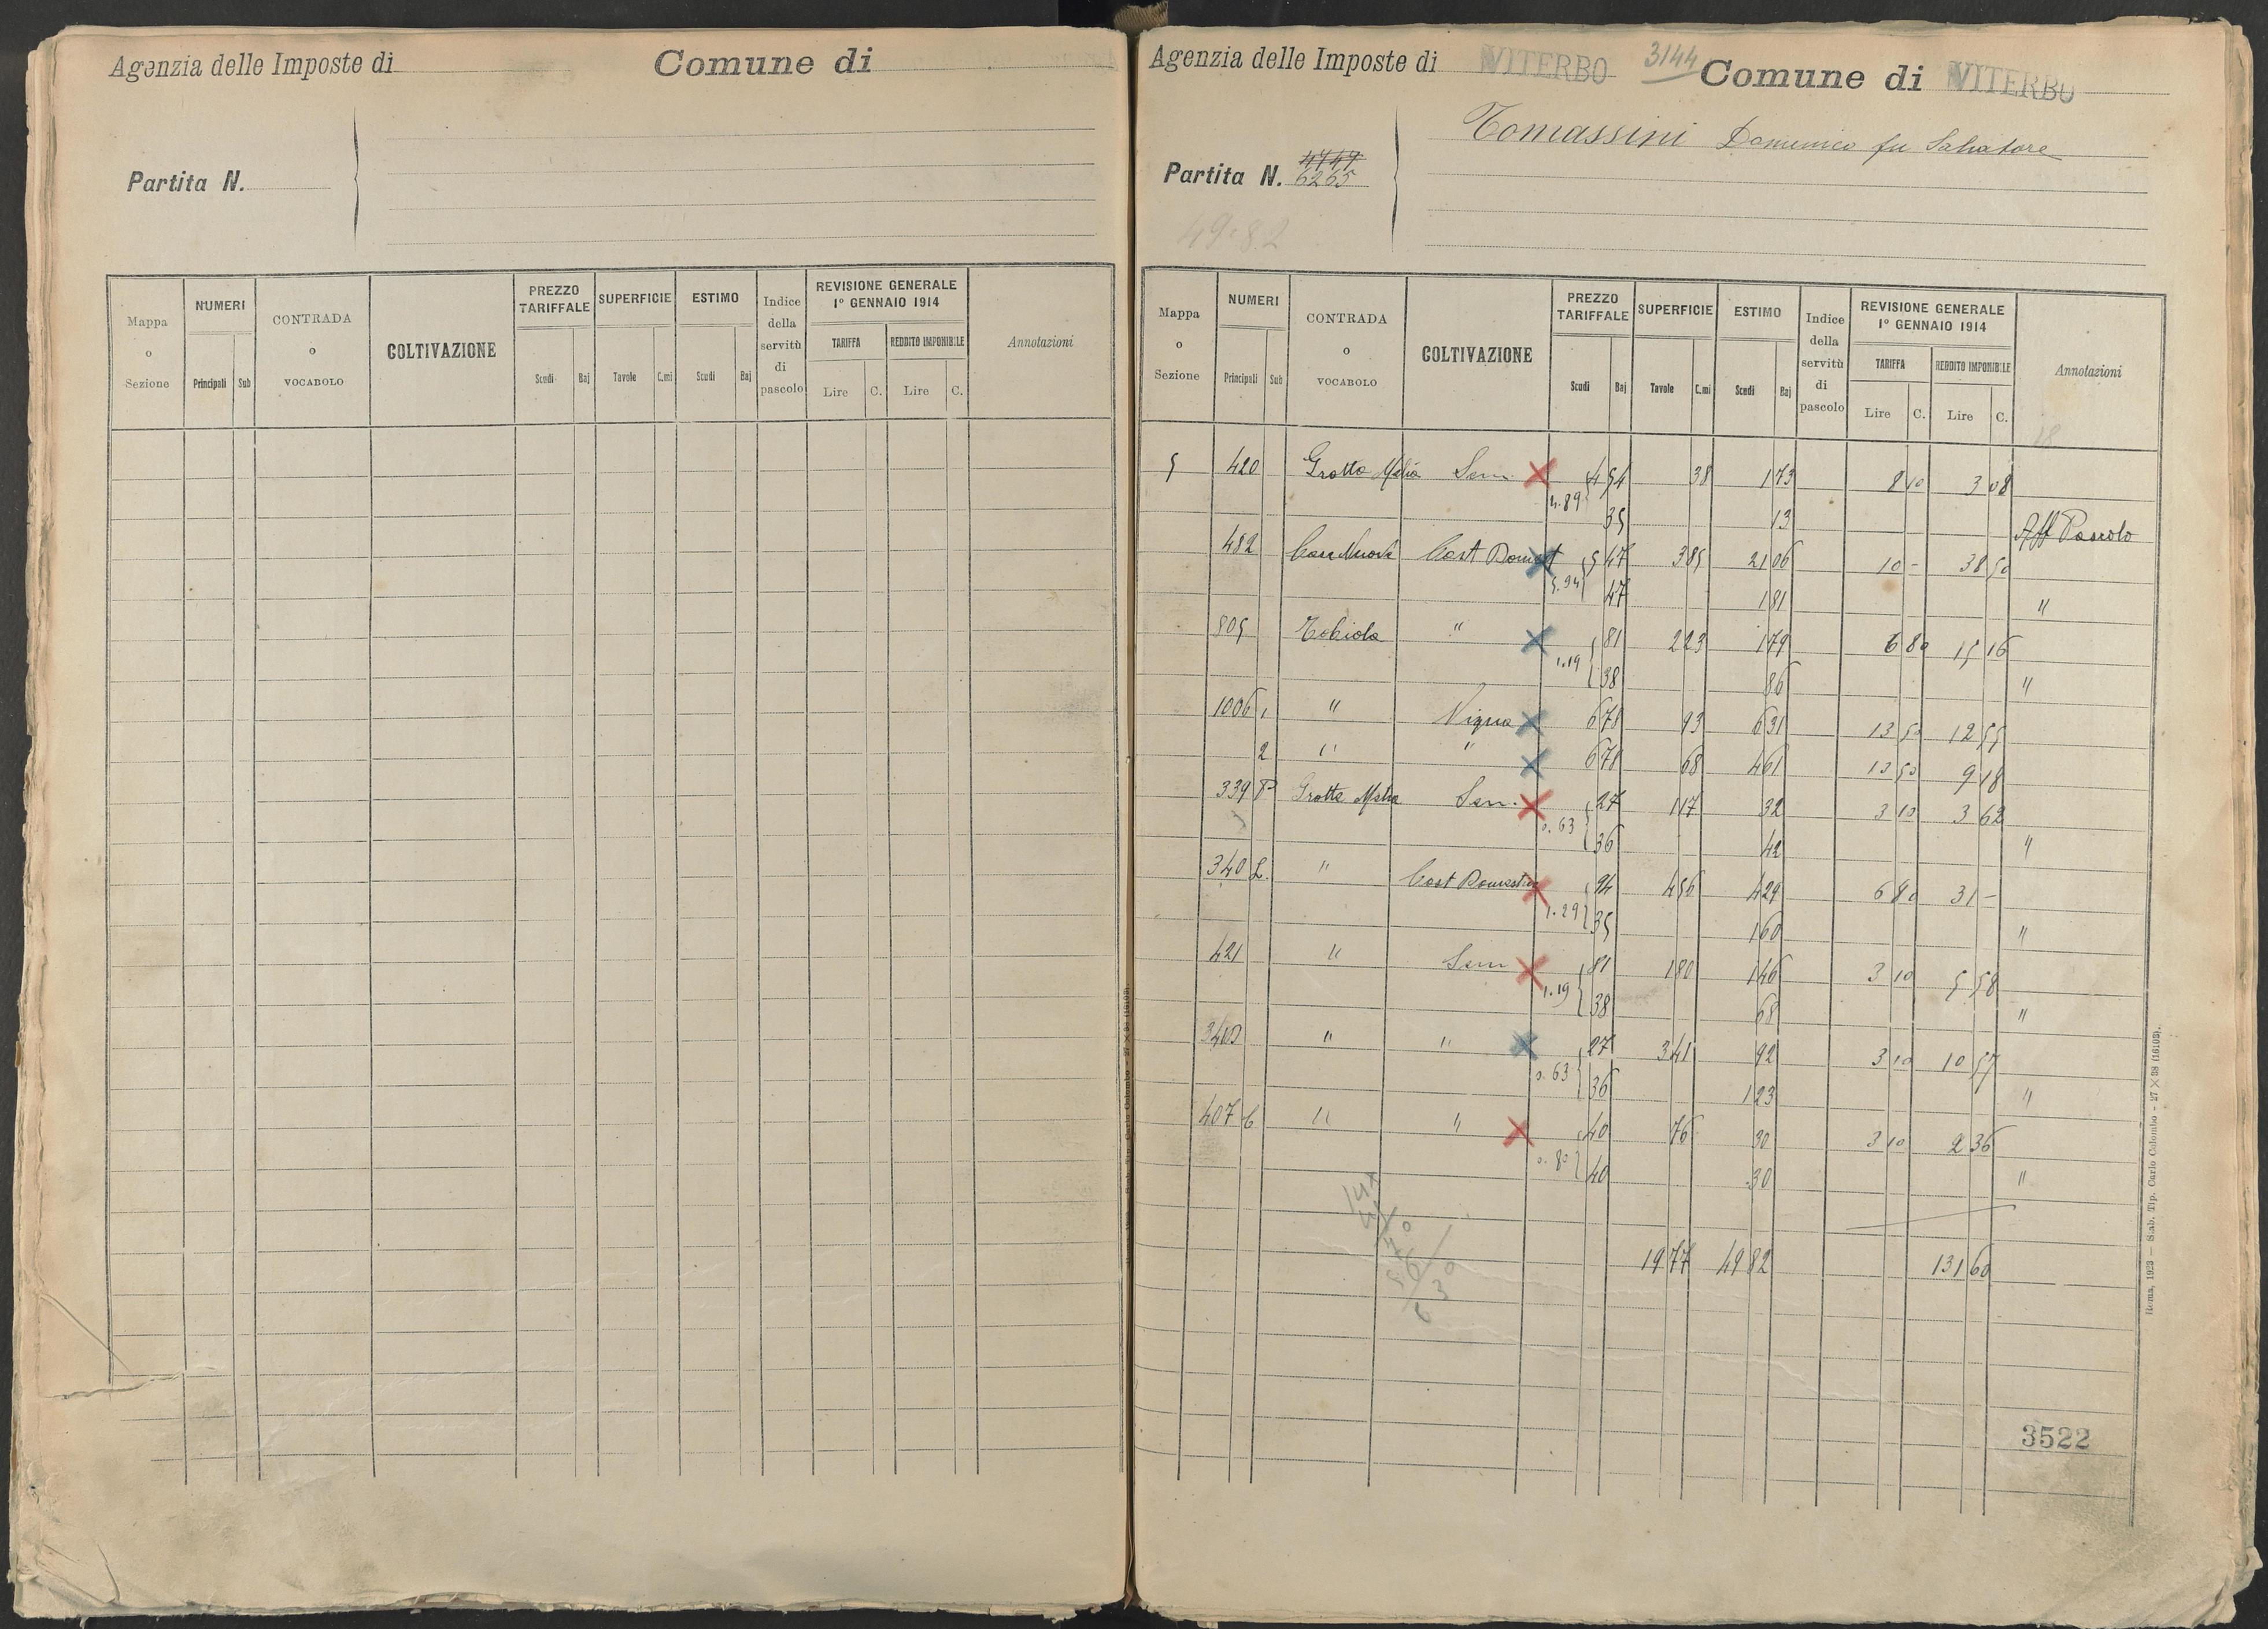 Agenzia delle Imposte di Comune di
Partita N.
Mappa o Sezione NUMERI Principali Sub CONTRADA o VOCABOLO COLTIVAZIONE PREZZO TARIFFALE Scudi Baj SUPERFICIE Tavole C.mi ESTIMO Scudi Baj Indice della servitù di pascolo REVISIONE GENERALE 1° GENNAIO 1914 TARIFFA Lire C. REDDITO IMPONIBILE Lire C. Annotazioni
Agenzia delle Imposte di VITERBO 3144 Comune di VITERBO
Tomassini Domenico fu Salvatore
4747
Partita N. 6265
49.82
Mappa o Sezione NUMERI Principali Sub CONTRADA o VOCABOLO COLTIVAZIONE PREZZO TARIFFALE Scudi Baj SUPERFICIE Tavole C.mi ESTIMO Scudi Baj Indice della servitù di pascolo REVISIONE GENERALE 1° GENNAIO 1914 TARIFFA Lire C. REDDITO IMPONIBILE Lire C. Annotazioni
18
5 420 Grotta Melia Sem. 4 54 38 1 73 8 10 3 08
4.89 35 13 Aff Pascolo
482 Case Nuove Cast Domest 5 47 3 85 21 06 10 - 38 50
5.94 47 1 81 "
805 Tobiola " 81 2 23 1 79 6 80 15 16
1.19 38 86 "
1006 1 " Vigna 6 78 93 6 31 13 50 12 55
2 " " 6 78 68 4 61 13 50 9 18
339 P Grotta Melia Sem. 27 1 17 32 3 10 3 62
0.63 36 42 "
340 L. " Cast Domestico 94 4 56 4 29 6 80 31 -
1.29 35 1 60 "
421 " Sem 81 1 80 1 46 3 10 5 58
1.19 38 68 "
340 " " 27 3 41 92 3 10 10 57
0.63 36 1 23 "
407 " " 40 76 30 3 10 2 36
0.80 40 30 "
19 77 49 82 131 60
3522
Roma, 1923 — Stab. Tip. Carlo Colombo - 27 × 38 (16103).